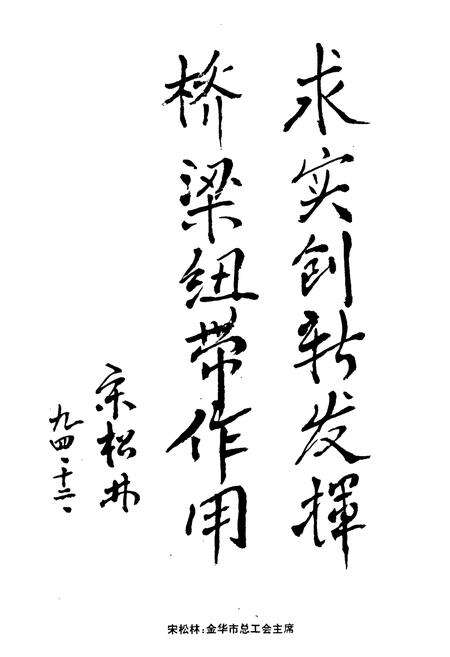 求实创新发挥
桥梁纽带作用
宋松林
九四、十二、
宋松林：金华市总工会主席